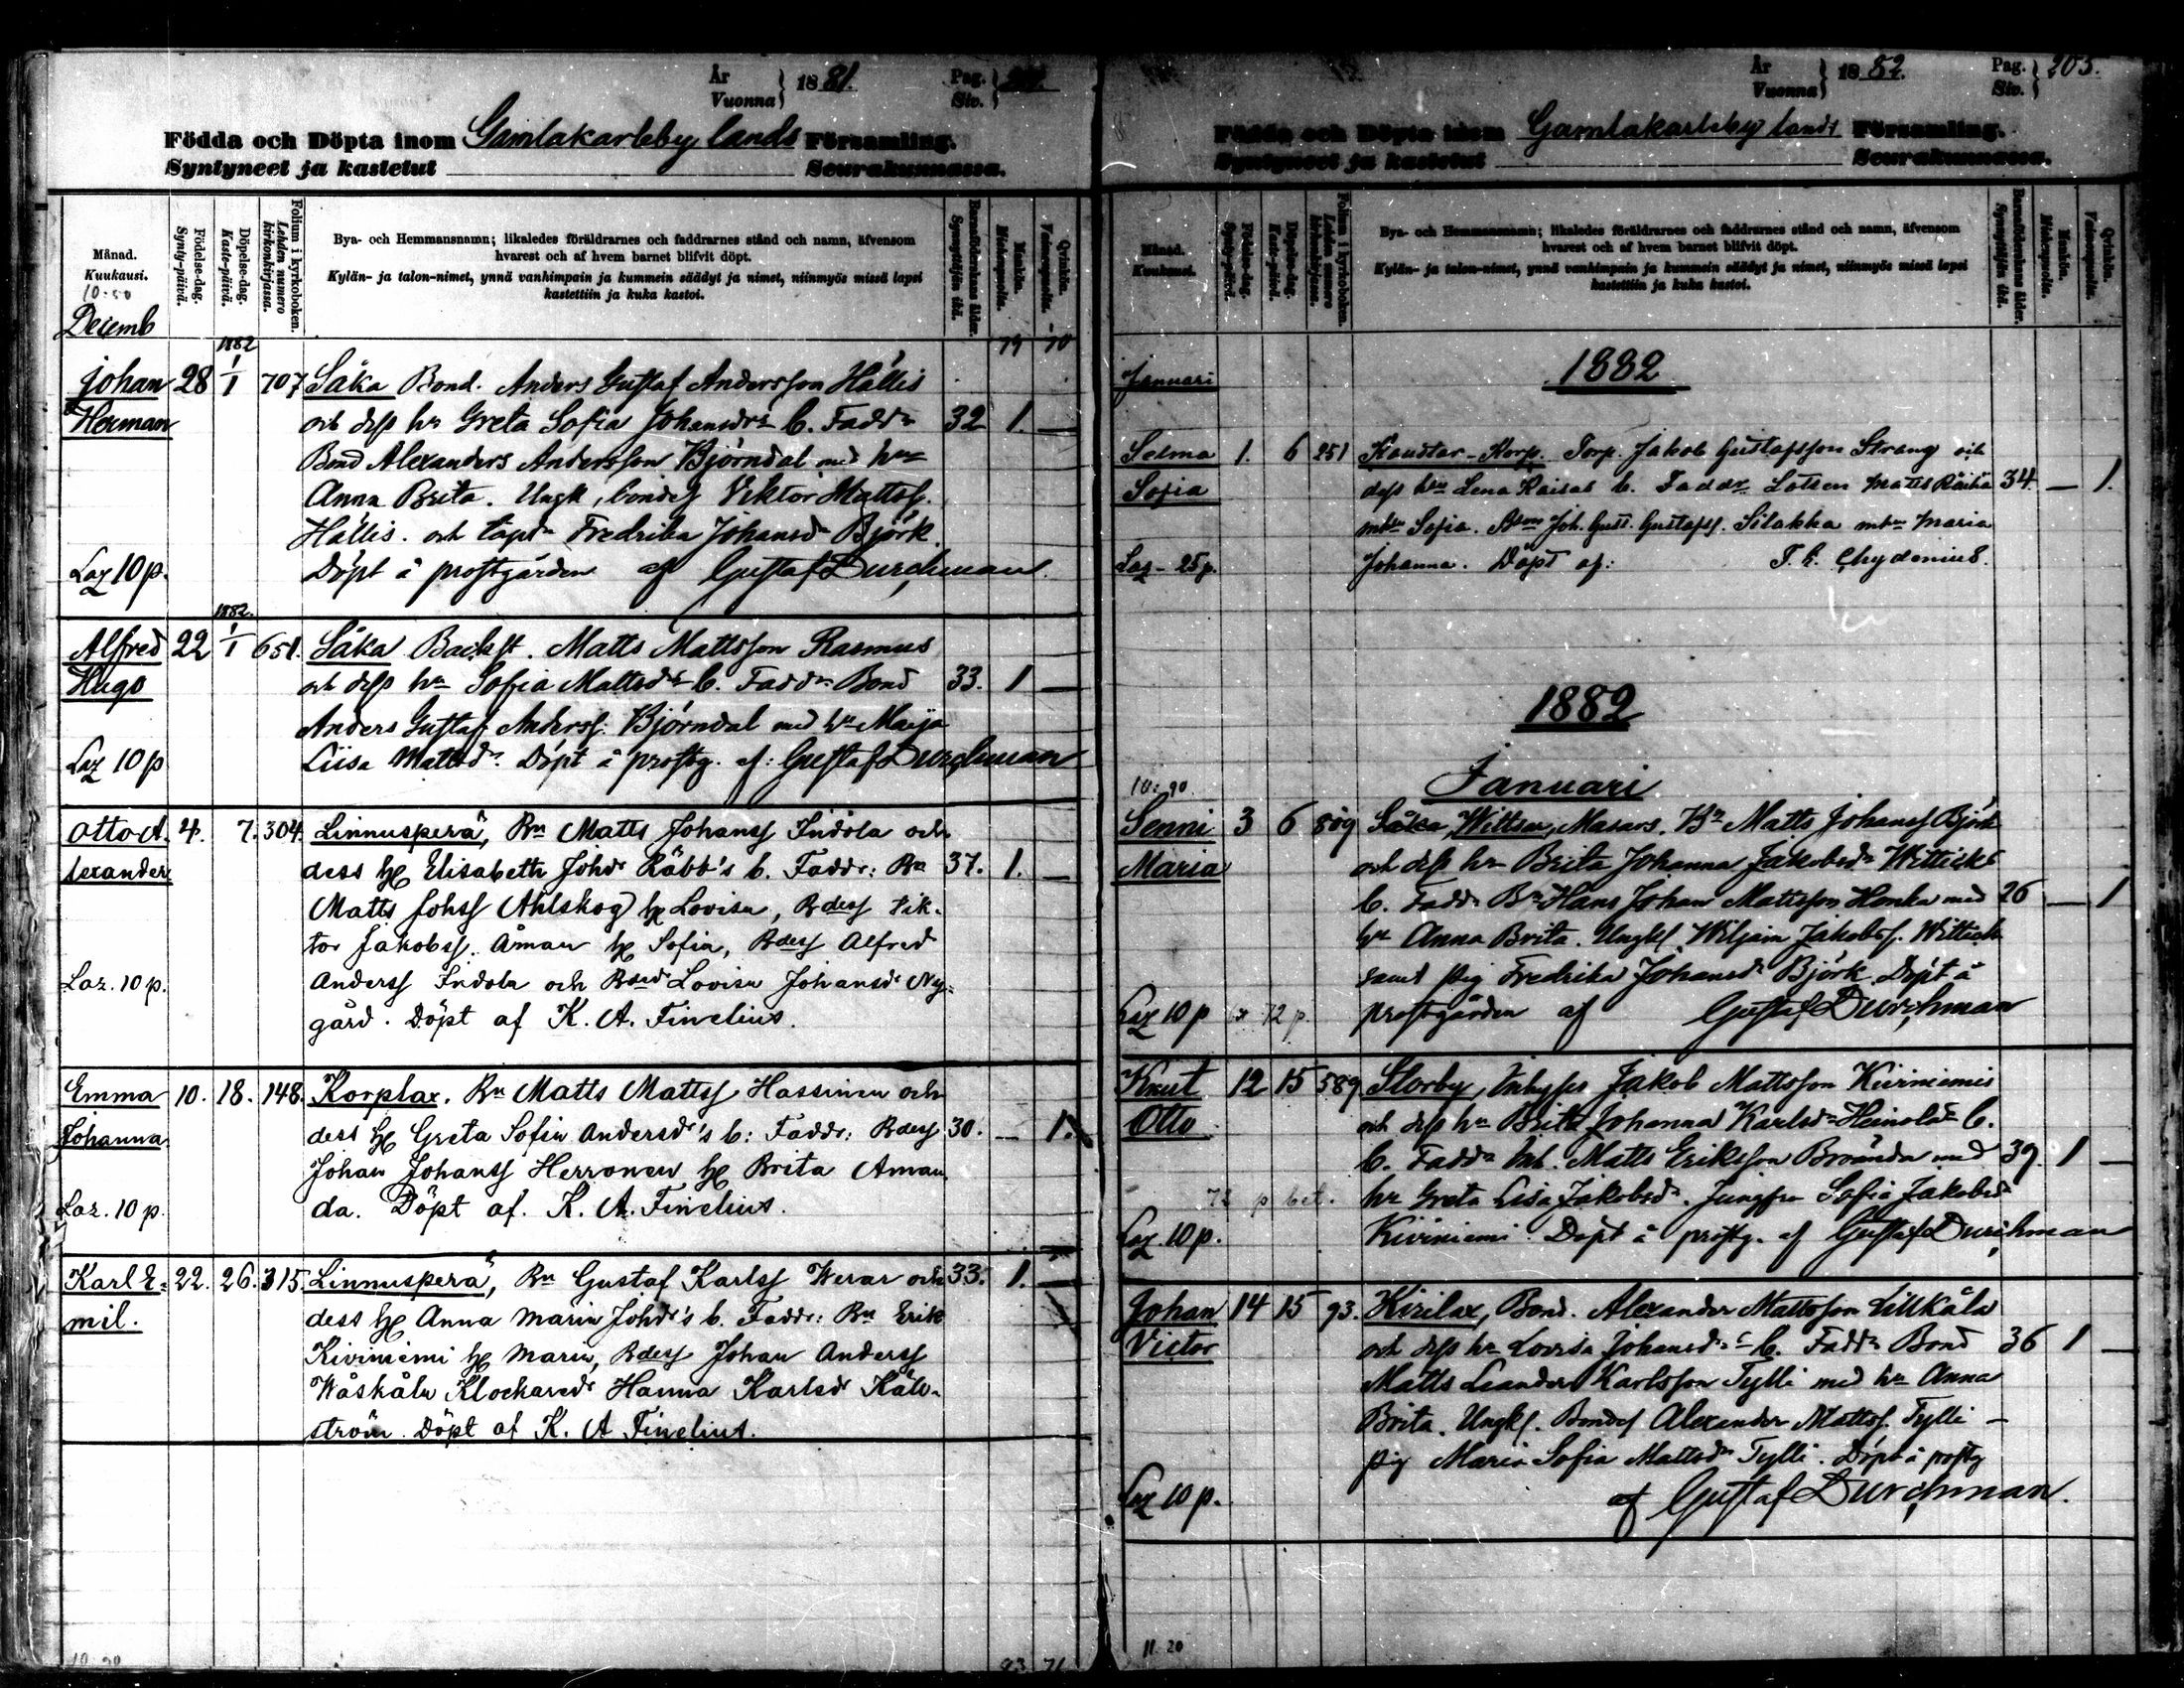 År
Vuonna } 1881.
Pag.
Siv. }
Födda och Döpta inom Gamlakarleby lands Församling.
Syntyneet ja kastetut Seurakunnassa.
Månad.
Kuukausi.
Födelse-dag.
Synty-päivä.
Döpelse-dag.
Kaste-päivä.
Folium i kyrkoboken.
Lehden numero kirkonkirjassa.
Bya- och Hemmansnamn; likaledes föräldrarnes och faddrarnes stånd och namn, äfvensom
hvarest och af hvem barnet blifvit döpt.
Kylän- ja talon-nimet, ynnä vanhimpain ja kummein säädyt ja nimet, niinmyös missä lapsi
kastettiin ja kuka kastoi.
Barnaföderskans ålder.
Synnyttäjän ikä.
Mankön.
Miehenpuolia.
Qvinkön.
Vaimonpuolia.
10:50
Decemb
1882 79 70
Johan 28 1/1 707 Såka Bond. Anders Gustaf Andersson Hällis
Herman och dess hu Greta Sofia Johansdrs b. Faddr 32 1. —
Bond Alexanders Andersson Björndal med hu
Anna Brita. Ungk, bondes Viktor Mattss.
Hällis. och Fredrika Johansdr Björk.
Laz 10 p. Döpt å prostgården af Gustaf Durchman.
1882.
Alfred 22 1/1 651. Såka Backst. Matts Mattsson Rasmus
Hugo och dess hu Sofia Mattsdrs b. Faddr Bond 33. 1 —
Anders Gustaf Anderss. Björndal med hu Maija
Laz 10 p Liisa Mattsdr. Döpt å prostg. af: Gustaf Durchman
Otto A. 4. 7. 304. Linnusperä, Bn Matts Johanss Indola och
lexander dess h Elisabeth Johdr Räbb's b. Faddr: Bn 37. 1. —
Matts Johss Ahlskog h Lovisa, Bdess Vik-
tor Jakobss. Åman h Sofia, Bdess Alfred
Laz. 10 p. Anderss Indola och Bdedr Lovisa Johansdr Ny-
gård. Döpt af K. A. Finelius.
Emma 10. 18. 148. Korplax. Bn Matts Mattss Hassinen och
Johanna dess h Greta Sofia Andersdr's b: Faddr: Bdess 30. — 1.
Johan Johanss Herronen h Brita Aman
Laz. 10 p. da. Döpt af. K. A. Finelius.
Karl E- 22. 26. 315. Linnusperä, Bn Gustaf Karlss Werar och 33. 1. —
mil. dess h Anna Maria Johdr's b. Faddr: Bn Erik
Kiviniemi h Maria, Bdess Johan Anderss
Wåskåla Klockaredr Hanna Karlsdr Käll-
ström. Döpt af K. A Finelius.
År
Vuonna } 1882.
Pag.
Siv. } 203.
Födda och Döpta inom Gamlakarleby lands Församling.
Syntyneet ja kastetut Seurakunnassa.
Månad.
Kuukausi.
Födelse-dag.
Synty-päivä.
Döpelse-dag.
Kaste-päivä.
Folium i kyrkoboken.
Lehden numero kirkonkirjassa.
Bya- och Hemmansnamn; likaledes föräldrarnes och faddrarnes stånd och namn, äfvensom
hvarest och af hvem barnet blifvit döpt.
Kylän- ja talon-nimet, ynnä vanhimpain ja kummein säädyt ja nimet, niinmyös missä lapsi
kastettiin ja kuka kastoi.
Barnaföderskans ålder.
Synnyttäjän ikä.
Mankön.
Miehenpuolia.
Qvinkön.
Vaimonpuolia.
Januari 1882
Selma 1. 6 251 Kaustar-Korp. Torp. Jakob Gustafsson Strang och
Sofia dess hu Lena Kaisas b. Faddr Lotsen Matts Räihä 34. — 1.
Sofia. Joh. Gust. Gustafss. Silakka Maria
Laz- 25 p. Johanna. Döpt af: Chydenius.
1882
Januari
10:90.
Senni 3 6 809 Såka, Wittsar, Masars. Bn Matts Johanss Björk
Maria och dess hu Brita Johanna Jakobsdr Wittick
b. Faddr Bn Hans Johan Mattsson Honka med 26 — 1
hu Anna Brita. Ungkl Wiljam Jakobss. Wittick
samt pig Fredrika Johansdr Björk. Döpt å
Laz 10 p 12 p. prostgården af Gustaf Durchman
Knut 12 15 589. Storby, Inhyses Jakob Mattsson Kiviniemis
Otto och dess hu Brita Johanna Karlsdr Heinolas b.
b. Faddr Inh. Matts Eriksson Broända med 39. 1 —
72 p bet. hu Greta Lisa Jakobsdr. Jungfru Sofia Jakobsdr
Laz. 10 p. Kiviniemi. Döpt å prostg. af Gustaf Durchman
Johan 14 15 93. Kirilax, Bond. Alexander Mattsson Lillkåla
Victor och dess hu Lovisa Johansdrs b. Faddr Bond 36 1 —
Matts Leander Karlsson Tylli med hu Anna
Brita. Ungkl. Bondes Alexander Mattss. Tylli —
pig Maria Sofia Mattsdr Tylli. Döpt å prostg
Laz 10 p. af Gustaf Durchman.
11.20